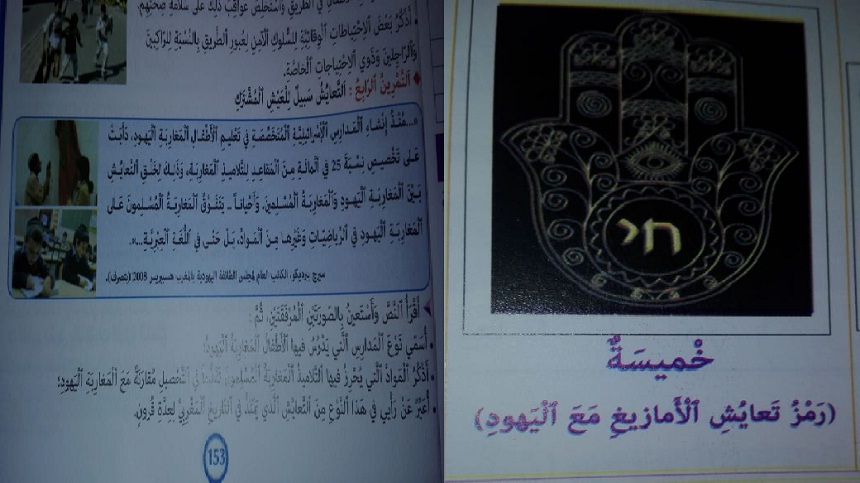 في الطريق وأستخلص عواقب ذلك على سلامة صحتهم.
• أَذْكُرُ بَعْضَ ٱلِٱحْتِياطاتِ ٱلْوِقائِيَّةِ لِلسُّلوكِ ٱلْآمِنِ لِعُبورِ ٱلطَّريقِ بِالنِّسْبَةِ لِلرّاكِبينَ
وَٱلرّاجِلينَ وَذَوي ٱلِٱحْتِياجاتِ ٱلْخاصَّةِ.
♦ ٱلتَّمْرينُ ٱلرّابِعُ : ٱلتَّعايُشُ سَبيلٌ لِلْعَيْشِ ٱلْمُشْتَرَكِ
«...مُنْذُ إِنْشاءِ ٱلْمَدارِسِ ٱلْإِسْرائيلِيَّةِ ٱلْمُتَخَصِّصَةِ في تَعْليمِ ٱلْأَطْفالِ ٱلْمَغارِبَةِ ٱلْيَهودِ، دَأَبَتْ
عَلى تَخْصيصِ نِسْبَةِ 25 في ٱلْمائَةِ مِنَ ٱلْمَقاعِدِ لِلتَّلاميذِ ٱلْمَغارِبَةِ، وَذَلِكَ لِخَلْقِ ٱلتَّعايُشِ
بَيْنَ ٱلْمَغارِبَةِ ٱلْيَهودِ وَٱلْمَغارِبَةِ ٱلْمُسْلِمينَ. وَأَحْياناً - يَتَفَوَّقُ ٱلْمَغارِبَةُ ٱلْمُسْلِمونَ عَلى
ٱلْمَغارِبَةِ ٱلْيَهودِ في ٱلرِّياضِيّاتِ وَغَيْرِها مِنَ ٱلْمَوادِّ، بَلْ حَتّى في ٱللُّغَةِ ٱلْعِبْرِيَّةِ...».
سيرج بيرديكو، الكاتب العام لمجلس الطائفة اليهودية بالمغرب هسبريس 2008 (بتصرف).
أَقْرَأُ ٱلنَّصَّ وَأَسْتَعينُ بِالصّورَتَيْنِ ٱلْمُرْفَقَتَيْنِ، ثُمَّ :
• أُسَمّي نَوْعَ ٱلْمَدارِسِ ٱلَّتي يَدْرُسُ فيها ٱلْأَطْفالُ ٱلْمَغارِبَةُ ٱلْيَهودُ؛
• أَذْكُرُ ٱلْمَوادَّ ٱلَّتي يُحْرِزُ فيها ٱلتَّلاميذُ ٱلْمَغارِبَةُ ٱلْمُسْلِمونَ تَقَدُّماً في ٱلتَّحْصيلِ مُقارَنَةً مَعَ ٱلْمَغارِبَةِ ٱلْيَهودِ؛
• أُعَبِّرُ عَنْ رَأْيي في هَذا ٱلنَّوْعِ مِنَ ٱلتَّعايُشِ ٱلَّذي يَمْتَدُّ في ٱلتّاريخِ ٱلْمَغْرِبِيِّ لِعِدَّةِ قُرونٍ.
153
חי
خْميسَةٌ
(رَمْزُ تَعايُشِ ٱلْأَمازيغِ مَعَ ٱلْيَهودِ)